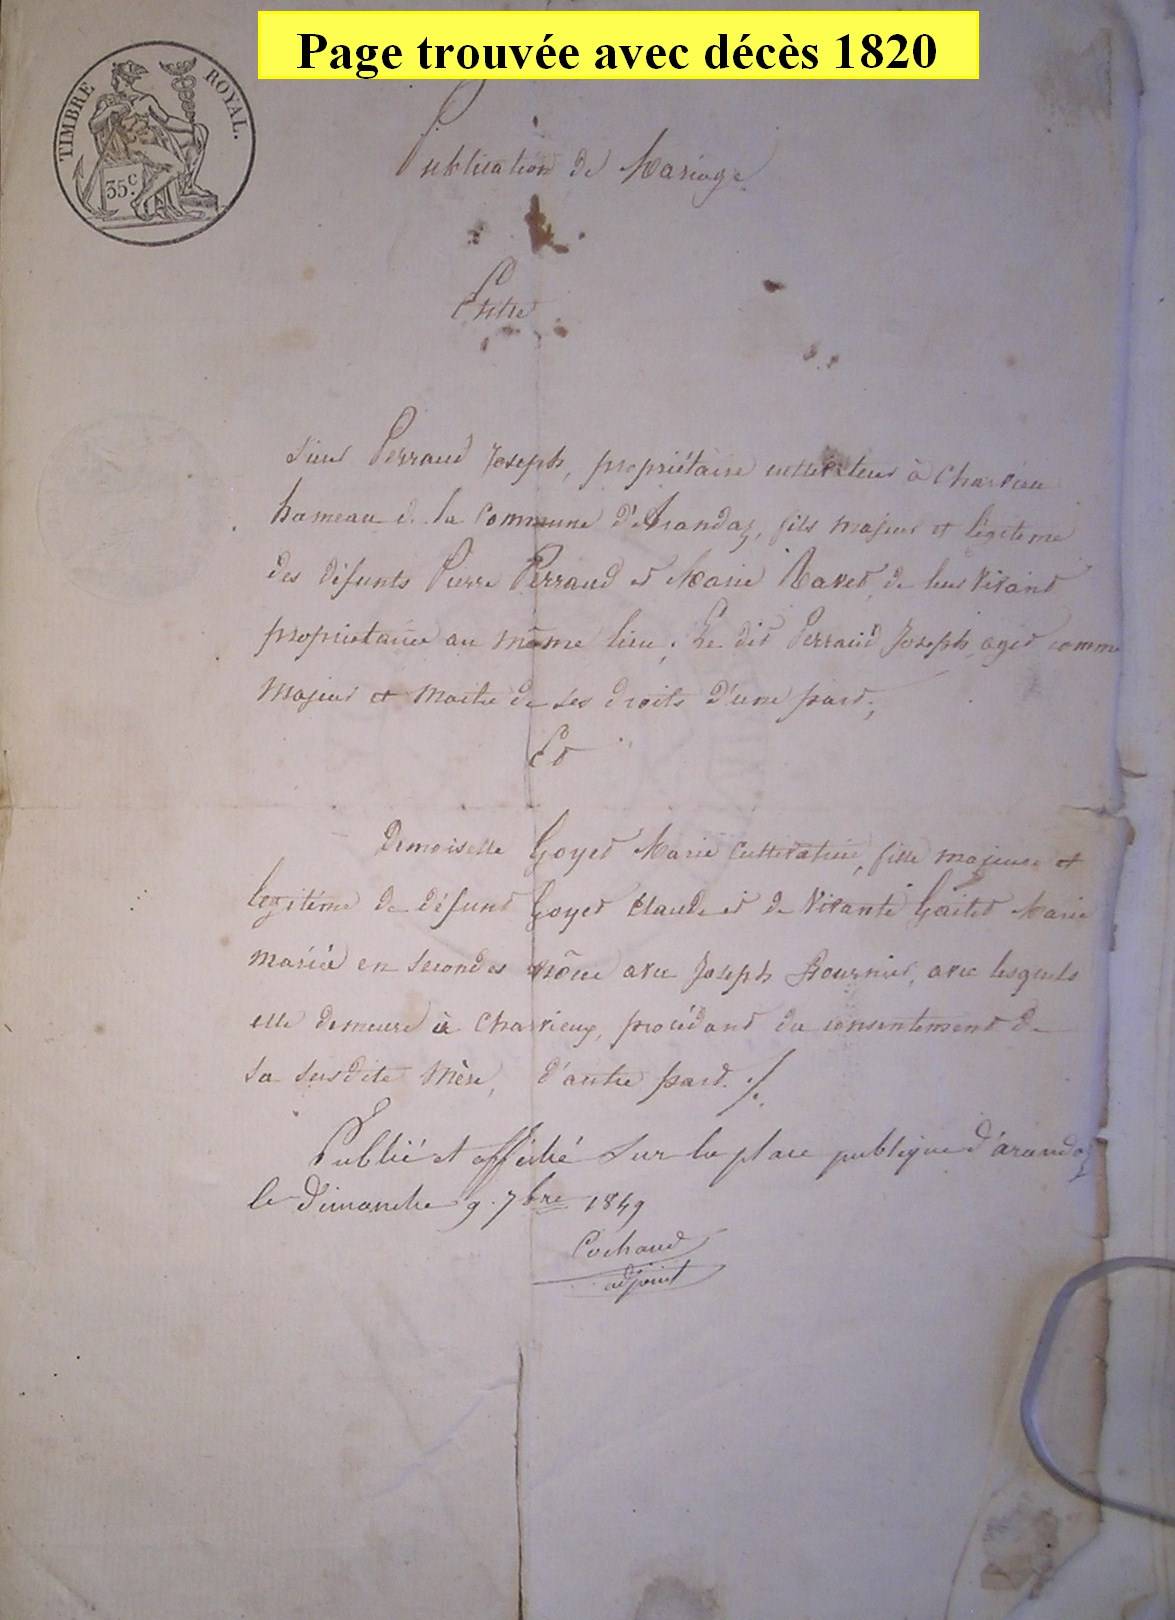 Page trouvée avec décès 1820
TIMBRE ROYAL.
35 c.
Publication de Mariage
Entre
Sieur Perraud Joseph, propriétaire cultivateur à Charvieu
hameau de la Commune d'Arandaz, fils majeur et légitime
des défunts Pierre Perraud et Marie Ravet, de leur vivant
propriétaires au même lieu; Le dit Perraud Joseph agit comme
Majeur et Maitre de ses droits d'une part;
Et
Demoiselle Goyet Marie Cultivatrice, fille majeure et
légitime de défunt Goyet Claude et de Vivante Marie
mariée en secondes avec Joseph Fournier, avec lesquels
elle demeure à Charvieux, procédant du consentement de
sa susdite Mère, d'autre part ./.
Publié et affiché sur la place publique d'arandaz
le Dimanche 9. 7bre 1849
Cochaud
adjoint